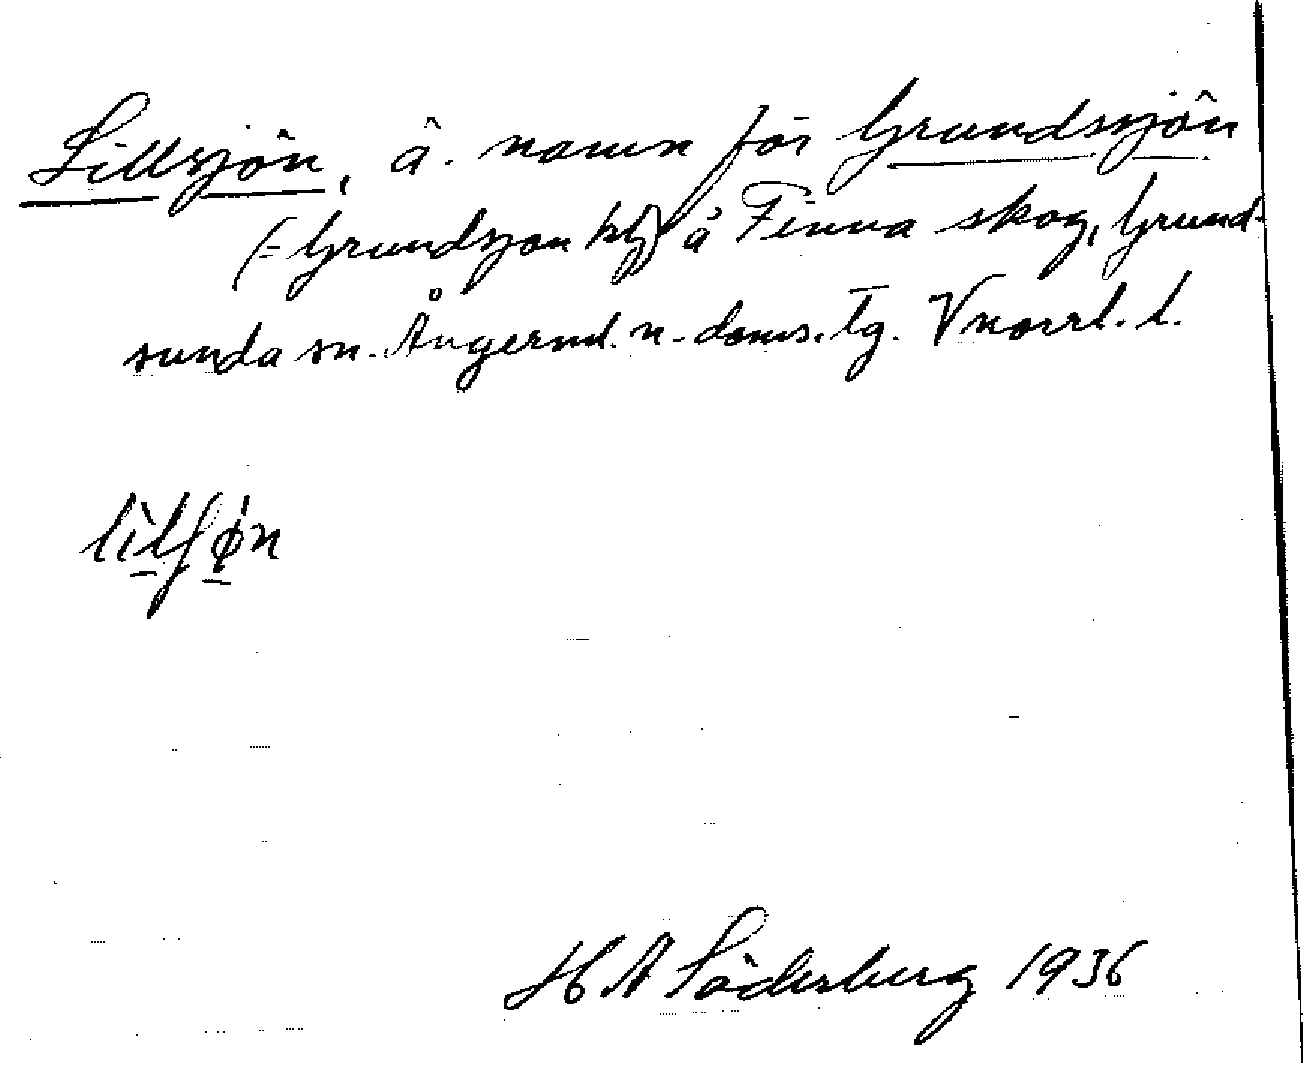 Lillsjön, ä. namn för Grundsjön
(= Grundsjön kbl) å Finna skog, Grund-
sunda sn. Ångerml. n. doms. tg. Vnorrl. l.
lilʃøn
H A Söderberg 1936